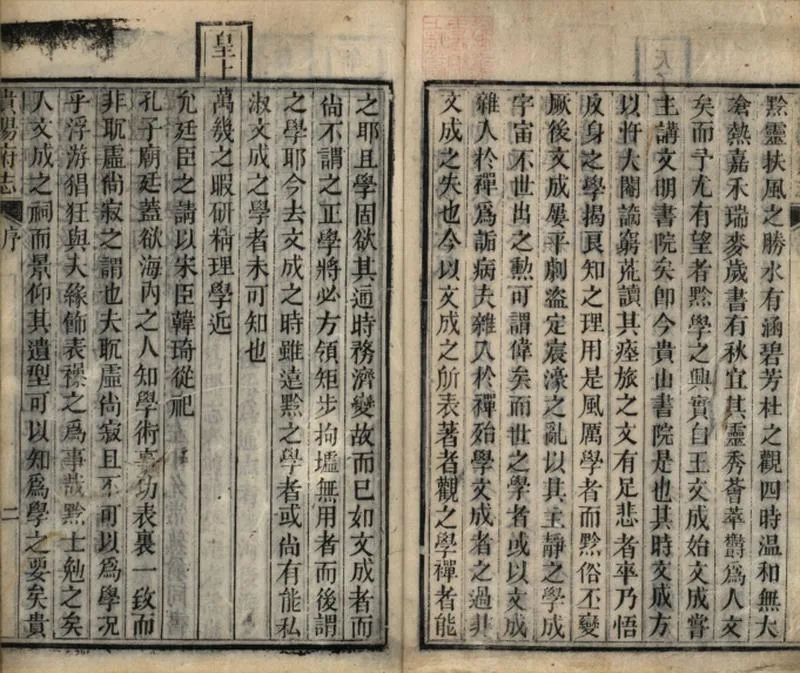 黔靈扶風之勝水有涵碧芳杜之觀四時温和無大
瘡熱嘉禾瑞麥歲書有秋宜其靈秀薈萃欝爲人文
矣而予尤有望者黔學之興實自王文成始文成嘗
主講文明書院矣卽今貴山書院是也其時文成方
以忤大閹謫窮荒讀其瘞旅之文有足悲者卒乃悟
反身之學揭良知之理用是風厲學者而黔俗丕變
厥後文成屢平劇盗定宸濠之亂以其主靜之學成
宇宙不世出之勲可謂偉矣而世之學者或以文成
雜入於禪爲詬病夫雜入於禪殆學文成者之過非
文成之失也今以文成之所表著者觀之學禪者能
之耶且學固欲其通時務濟變故而已如文成者而
尙不謂之正學將必方領矩步拘墟無用者而後謂
之學耶今去文成之時雖遠黔之學者或尙有能私
淑文成之學者未可知也
皇上
萬幾之暇研精理學近
允廷臣之請以宋臣韓琦從祀
孔子廟廷蓋欲海內之人知學術事功表裏一致而
非耽虛尙寂之謂也夫耽虛尙寂且不可以爲學况
乎浮游猖狂與夫緣飾表襮之爲事哉黔士勉之矣
人文成之祠而景仰其遺型可以知爲學之要矣貴
貴陽府志
序
二